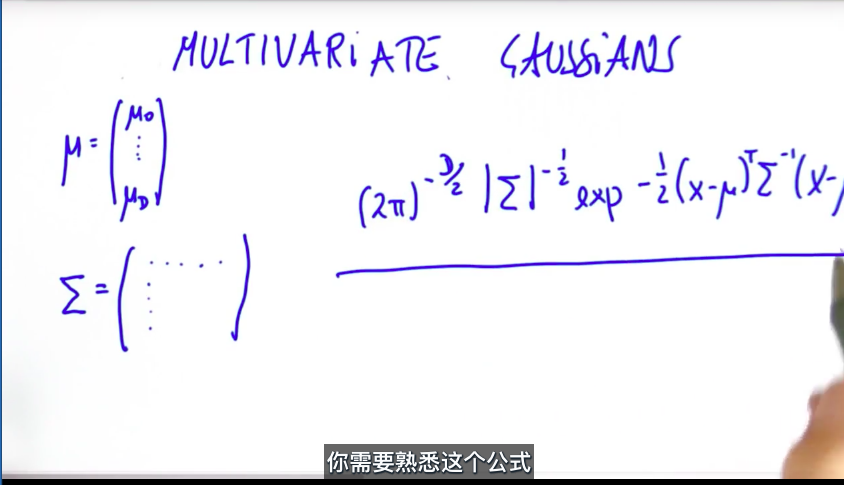 MULTIVARIATE GAUSSIANS
μ = (μ0 ⋮ μD)
(2π)^-D/2 |Σ|^-1/2 exp -1/2(x-μ)^T Σ^-1(x-μ
Σ = ( )
你需要熟悉这个公式